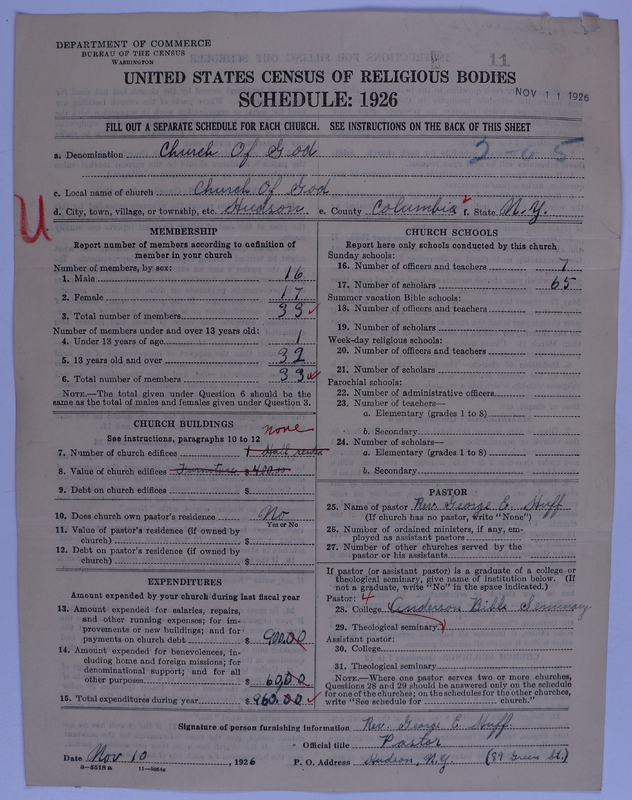 DEPARTMENT OF COMMERCE
BUREAU OF THE CENSUS
WASHINGTON
11
UNITED STATES CENSUS OF RELIGIOUS BODIES
SCHEDULE: 1926
NOV 11 1926
FILL OUT A SEPARATE SCHEDULE FOR EACH CHURCH. SEE INSTRUCTIONS ON THE BACK OF THIS SHEET
a. Denomination Church Of God
2-65
c. Local name of church Church Of God
d. City, town, village, or township, etc. Hudson e. County Columbia f. State N.Y.
U
MEMBERSHIP
Report number of members according to definition of
member in your church
Number of members, by sex:
1. Male 16
2. Female 17
3. Total number of members 33
Number of members under and over 13 years old:
4. Under 13 years of age 1
5. 13 years old and over 32
6. Total number of members 33
NOTE.—The total given under Question 6 should be the
same as the total of males and females given under Question 3.
CHURCH BUILDINGS
See instructions, paragraphs 10 to 12
none
7. Number of church edifices 1 Hall
8. Value of church edifices Furniture $400.00
9. Debt on church edifices $
10. Does church own pastor's residence No
Yes or No
11. Value of pastor's residence (if owned by
church) $
12. Debt on pastor's residence (if owned by
church) $
EXPENDITURES
Amount expended by your church during last fiscal year
13. Amount expended for salaries, repairs,
and other running expenses; for im-
provements or new buildings; and for
payments on church debt $ 900.00
14. Amount expended for benevolences, in-
cluding home and foreign missions; for
denominational support; and for all
other purposes $ 60.00
15. Total expenditures during year $960.00
CHURCH SCHOOLS
Report here only schools conducted by this church
Sunday schools:
16. Number of officers and teachers 7
17. Number of scholars 65
Summer vacation Bible schools:
18. Number of officers and teachers
19. Number of scholars
Week-day religious schools:
20. Number of officers and teachers
21. Number of scholars
Parochial schools:
22. Number of administrative officers
23. Number of teachers—
a. Elementary (grades 1 to 8)
b. Secondary
24. Number of scholars—
a. Elementary (grades 1 to 8)
b. Secondary
PASTOR
25. Name of pastor Rev. George E. Huff
(If church has no pastor, write "None")
26. Number of ordained ministers, if any, em-
ployed as assistant pastors
27. Number of other churches served by the
pastor or his assistants
If pastor (or assistant pastor) is a graduate of a college or
theological seminary, give name of institution below. (If
not a graduate, write "No" in the space indicated.)
Pastor: 4
28. College Anderson Bible Seminary
29. Theological seminary
Assistant pastor:
30. College
31. Theological seminary
NOTE.—Where one pastor serves two or more churches,
Questions 28 and 29 should be answered only on the schedule
for one of the churches; on the schedules for the other churches,
write "See schedule for church."
Signature of person furnishing information Rev. George E. Huff
Official title Pastor
Date Nov 10, 1926 P. O. Address Hudson, N.Y. (89 Green St.)
8-5518a